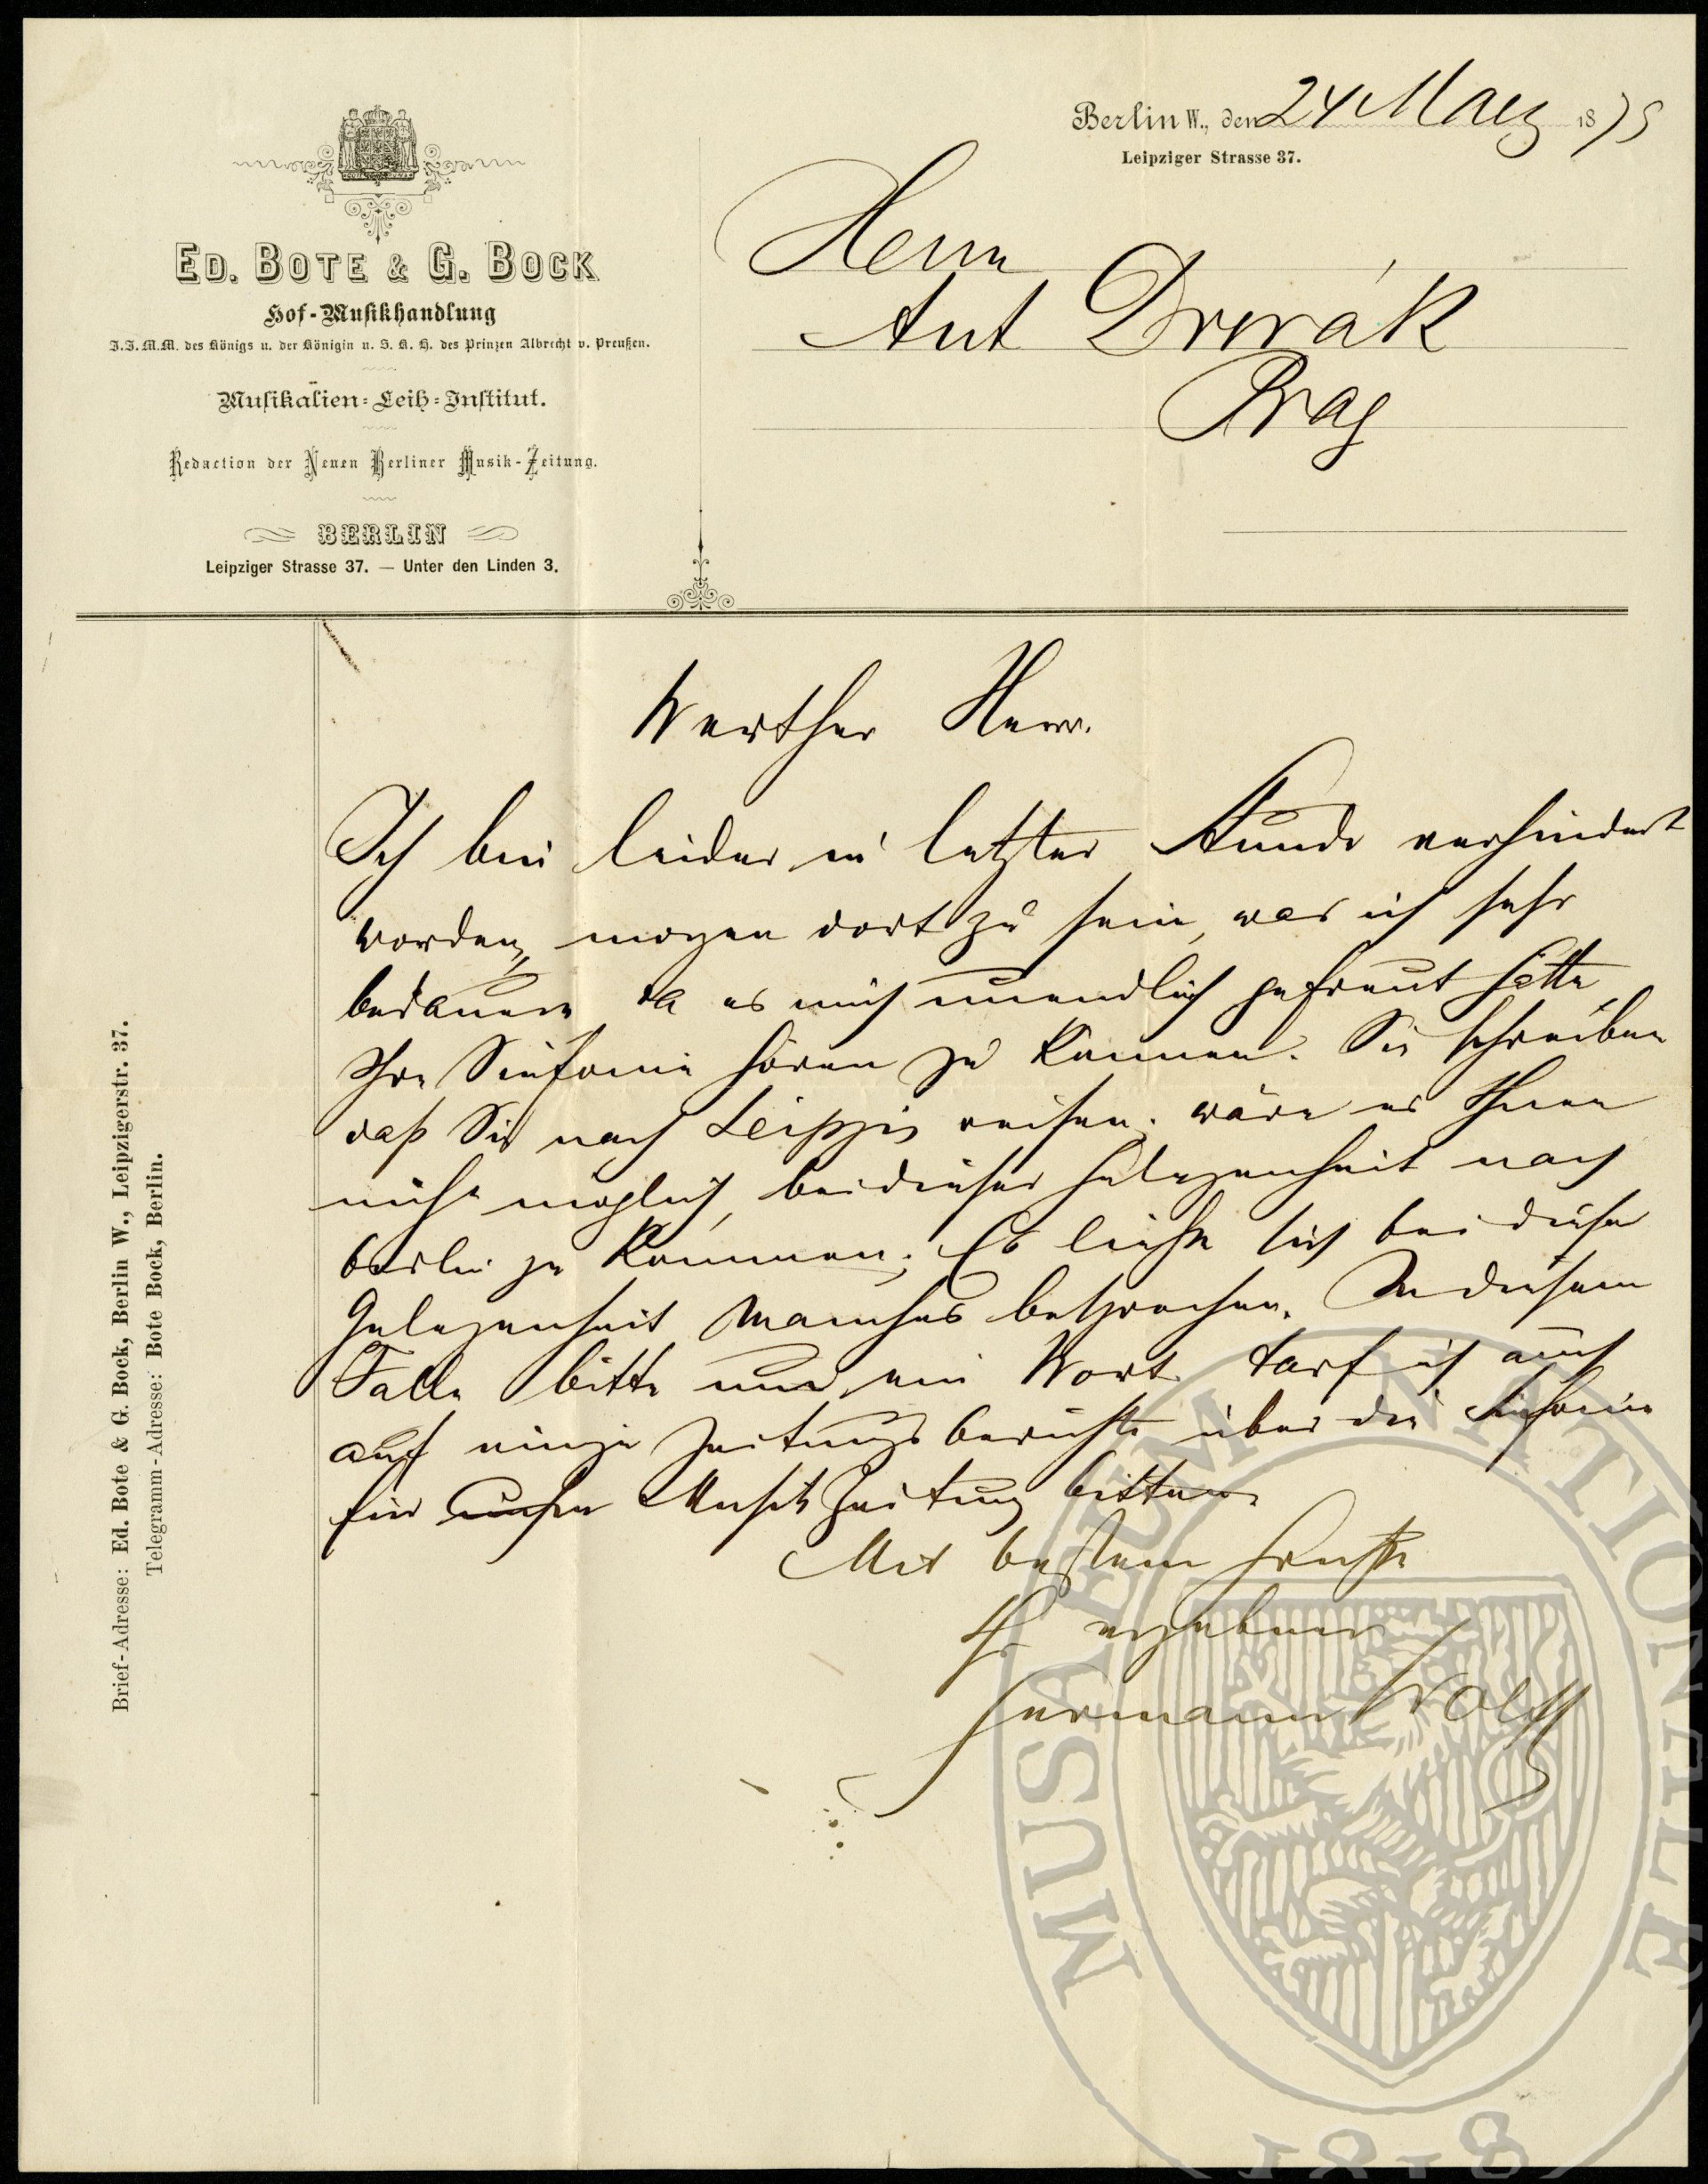 Berlin W., den 24 Maerz 1879
Leipziger Strasse 37.
ED. BOTE & G. BOCK
Hof-Musikhandlung
I.I.M.M. des Königs u. der Königin u. S. K. H. des Prinzen Albrecht v. Preußen.
Musikalien-Leih-Institut.
Redaction der Neuen Berliner Musik-Zeitung.
BERLIN
Leipziger Strasse 37. — Unter den Linden 3.
Herrn
Ant Dvorák
Prag
Brief-Adresse: Ed. Bote & G. Bock, Berlin W., Leipzigerstr. 37.
Telegramm-Adresse: Bote Bock, Berlin.
Werther Herr.
Ich bin leider in letzter Stunde verhindert
worden, morgen dort zu sein, was ich sehr
bedauere da es mich unendlich gefreut hätte,
Ihre Sinfonie hören zu können. Sie schreiben
daß Sie nach Leipzig reisen. wäre es Ihnen
nicht möglich, bei dieser Gelegenheit nach
Berlin zu kommen; Es ließe sich bei dieser
Gelegenheit Manches besprechen. In diesem
Falle bitte um ein Wort. Darf ich auch
auf einige Zeitungsberichte über die Sinfonie
für unsere Musik Zeitung bitten.
Mit bestem Gruße
Ihr ergebener
Hermann Wolff
MUSAEUM NATIONALE
1818